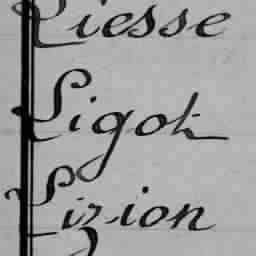 Liesse
Ligot
Lizion